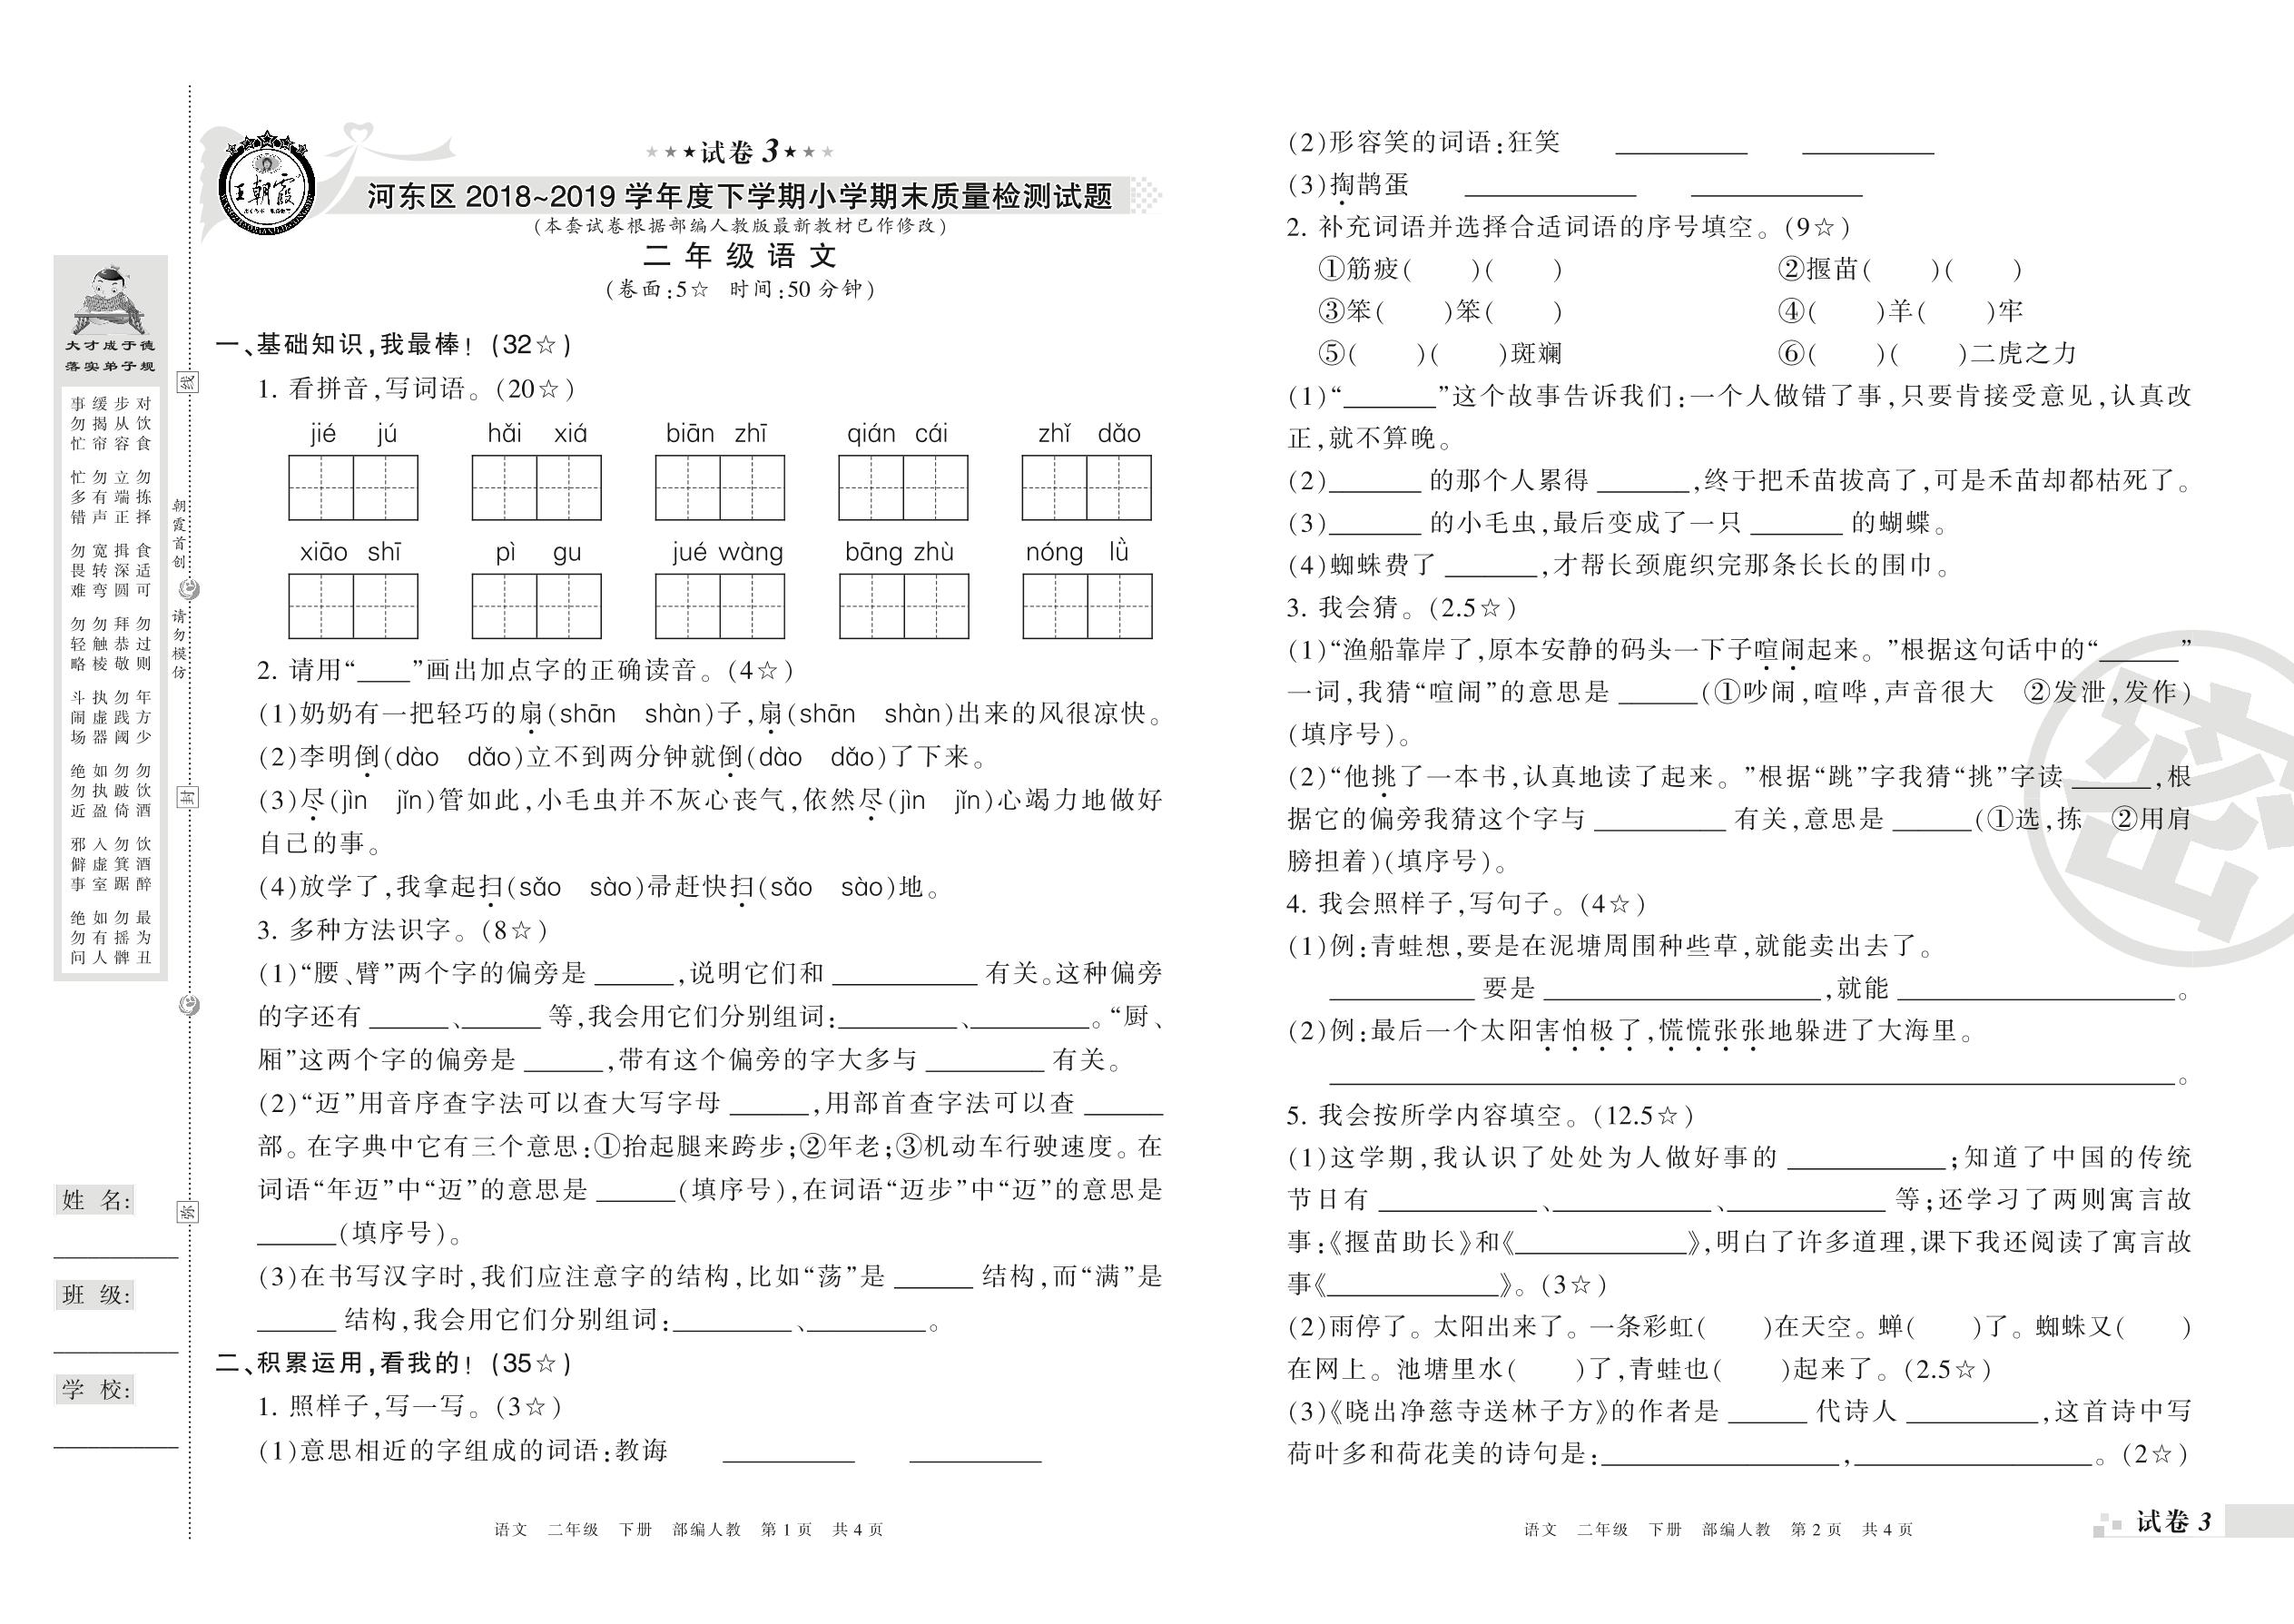 大才成于德
落实弟子规
对饮食 勿拣择 食适可 勿过则 年方少 勿饮酒 饮酒醉 最为丑
步从容 立端正 揖深圆 拜恭敬 勿践阈 勿跛倚 勿箕踞 勿摇髀
缓揭帘 勿有声 宽转弯 勿触棱 执虚器 如执盈 入虚室 如有人
事勿忙 忙多错 勿畏难 勿轻略 斗闹场 绝勿近 邪僻事 绝勿问
姓 名:
班 级:
学 校:
线
朝霞首创
请勿模仿
封
弥
王朝霞
★★★试卷3★★★
河东区 2018~2019 学年度下学期小学期末质量检测试题
(本套试卷根据部编人教版最新教材已作修改)
二年级语文
(卷面:5☆ 时间:50分钟)
一、基础知识,我最棒!(32☆)
1. 看拼音,写词语。(20☆)
jié jú hǎi xiá biān zhī qián cái zhǐ dǎo
xiāo shī pì gu jué wàng bāng zhù nóng lǜ
2. 请用“____”画出加点字的正确读音。(4☆)
(1)奶奶有一把轻巧的扇(shān shàn)子,扇(shān shàn)出来的风很凉快。
(2)李明倒(dào dǎo)立不到两分钟就倒(dào dǎo)了下来。
(3)尽(jìn jǐn)管如此,小毛虫并不灰心丧气,依然尽(jìn jǐn)心竭力地做好
自己的事。
(4)放学了,我拿起扫(sǎo sào)帚赶快扫(sǎo sào)地。
3. 多种方法识字。(8☆)
(1)“腰、臂”两个字的偏旁是______,说明它们和___________有关。这种偏旁
的字还有______、______等,我会用它们分别组词:_________、_________。“厨、
厢”这两个字的偏旁是______,带有这个偏旁的字大多与_________有关。
(2)“迈”用音序查字法可以查大写字母______,用部首查字法可以查______
部。在字典中它有三个意思:①抬起腿来跨步;②年老;③机动车行驶速度。在
词语“年迈”中“迈”的意思是______(填序号),在词语“迈步”中“迈”的意思是
______(填序号)。
(3)在书写汉字时,我们应注意字的结构,比如“荡”是______结构,而“满”是
______结构,我会用它们分别组词:_________、_________。
二、积累运用,看我的!(35☆)
1. 照样子,写一写。(3☆)
(1)意思相近的字组成的词语:教诲 __________ __________
语文 二年级 下册 部编人教 第1页 共4页
(2)形容笑的词语:狂笑 __________ __________
(3)掏鹊蛋 _____________ _____________
2. 补充词语并选择合适词语的序号填空。(9☆)
①筋疲( )( ) ②揠苗( )( )
③笨( )笨( ) ④( )羊( )牢
⑤( )( )斑斓 ⑥( )( )二虎之力
(1)“_______”这个故事告诉我们:一个人做错了事,只要肯接受意见,认真改
正,就不算晚。
(2)_______的那个人累得_______,终于把禾苗拔高了,可是禾苗却都枯死了。
(3)_______的小毛虫,最后变成了一只_______的蝴蝶。
(4)蜘蛛费了_______,才帮长颈鹿织完那条长长的围巾。
3. 我会猜。(2.5☆)
(1)“渔船靠岸了,原本安静的码头一下子喧闹起来。”根据这句话中的“______”
一词,我猜“喧闹”的意思是______(①吵闹,喧哗,声音很大 ②发泄,发作)
(填序号)。
(2)“他挑了一本书,认真地读了起来。”根据“跳”字我猜“挑”字读______,根
据它的偏旁我猜这个字与__________有关,意思是______(①选,拣 ②用肩
膀担着)(填序号)。
4. 我会照样子,写句子。(4☆)
(1)例:青蛙想,要是在泥塘周围种些草,就能卖出去了。
___________要是_____________________,就能_____________________。
(2)例:最后一个太阳害怕极了,慌慌张张地躲进了大海里。
________________________________________________________________。
5. 我会按所学内容填空。(12.5☆)
(1)这学期,我认识了处处为人做好事的____________;知道了中国的传统
节日有____________、____________、____________等;还学习了两则寓言故
事:《揠苗助长》和《_____________》,明白了许多道理,课下我还阅读了寓言故
事《_____________》。(3☆)
(2)雨停了。太阳出来了。一条彩虹( )在天空。蝉( )了。蜘蛛又( )
在网上。池塘里水( )了,青蛙也( )起来了。(2.5☆)
(3)《晓出净慈寺送林子方》的作者是______代诗人__________,这首诗中写
荷叶多和荷花美的诗句是:__________________,__________________。(2☆)
密
语文 二年级 下册 部编人教 第2页 共4页
试卷3